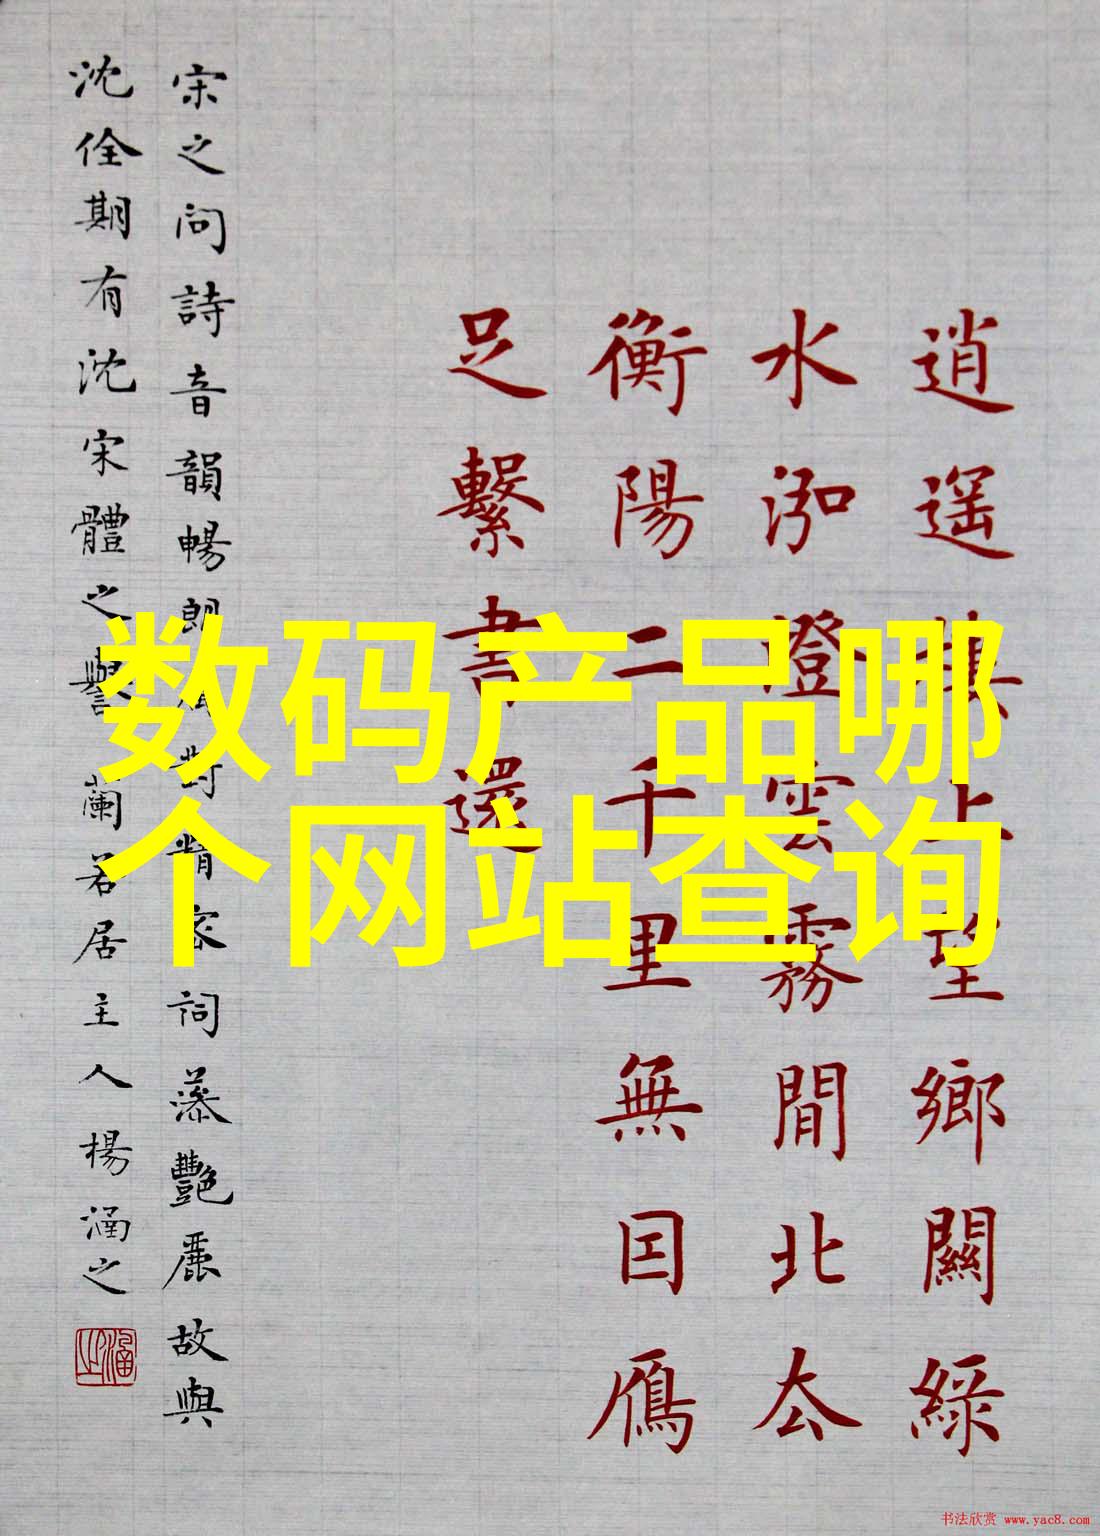 逍遥樓上望鄉關綠
水泓澄雲霧間北厺
衡陽二千里無囙鴈
足繫書還
宋之問詩音韻暢朗屬對精密詞藻艷麗故與
沈佺期有沈宋體之譽蘭若居主人楊涵之
数码产品哪
个网站查询
书法欣赏 www.yac8.com